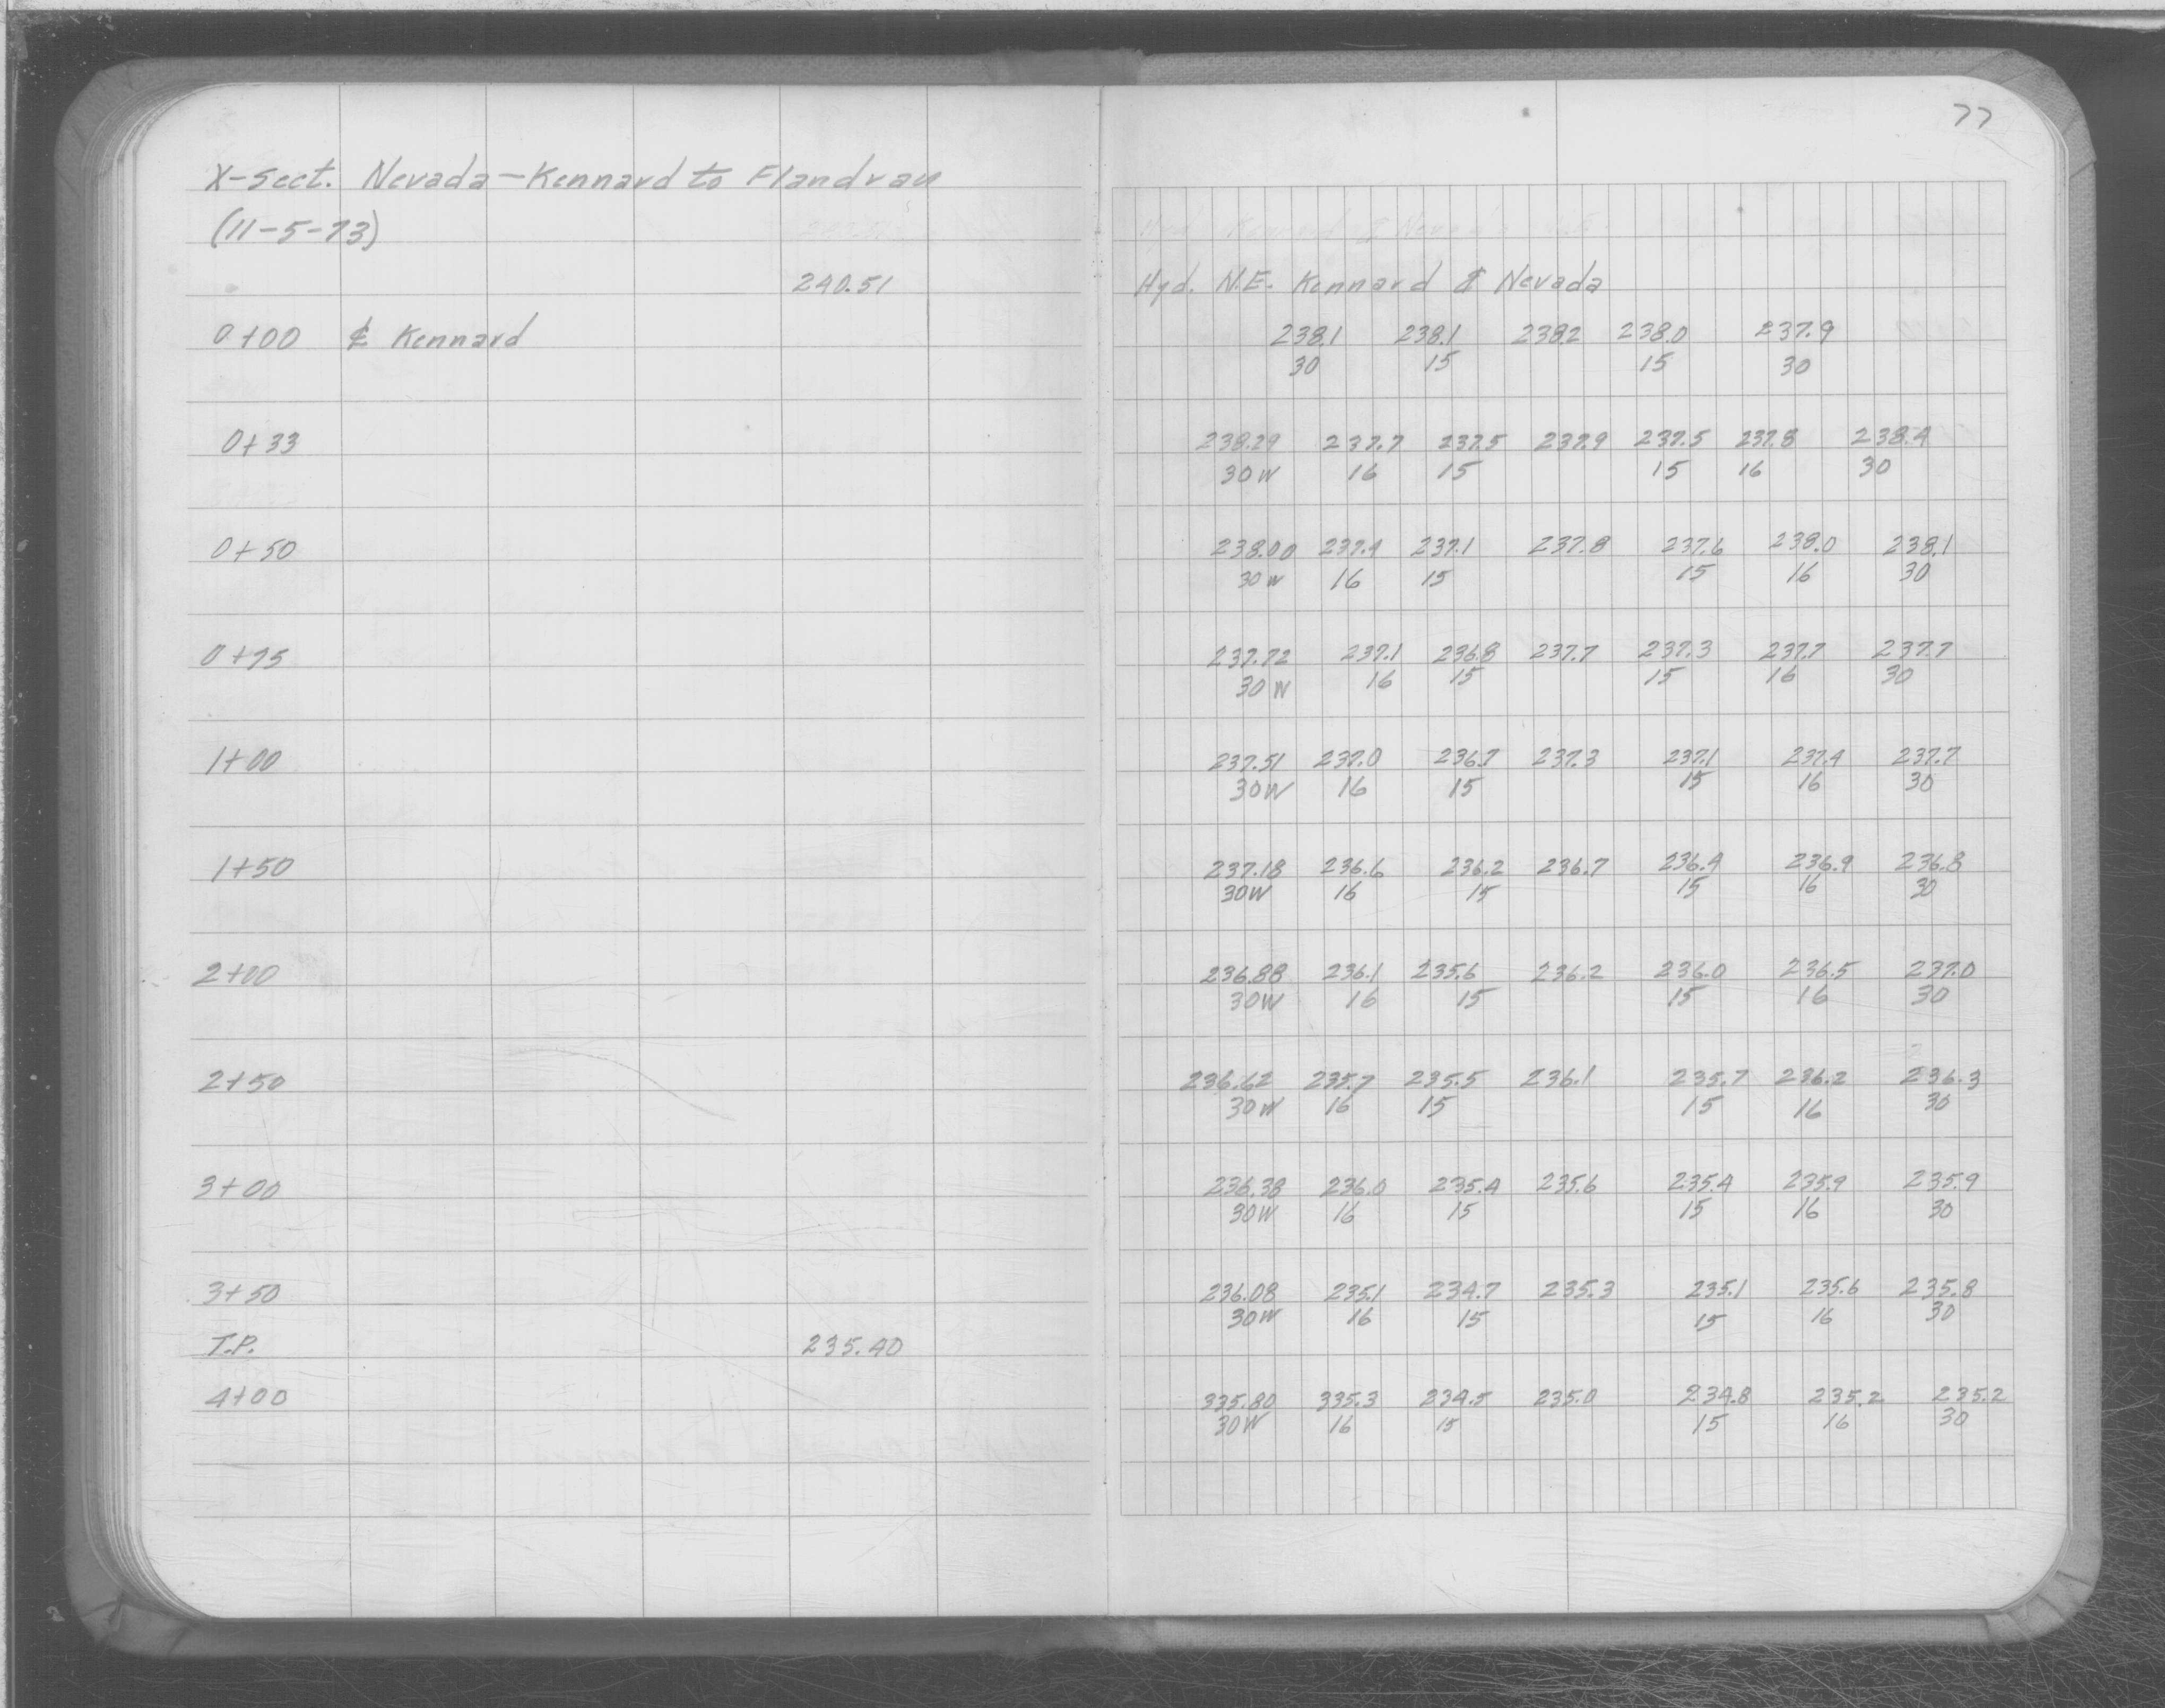 77
X-Sect. Nevada - Kennard to Flandrau
(11-5-73)
240.51 Hyd. N.E. Kennard & Nevada
0+00 ℄ Kennard 238.1 238.1 238.2 238.0 237.9
30 15 15 30
0+33 238.29 237.7 237.5 237.9 237.5 237.8 238.4
30W 16 15 15 16 30
0+50 238.00 237.4 237.1 237.8 237.6 238.0 238.1
30W 16 15 15 16 30
0+75 237.72 237.1 236.8 237.7 237.3 237.7 237.7
30W 16 15 15 16 30
1+00 237.51 237.0 236.7 237.3 237.1 237.4 237.7
30W 16 15 15 16 30
1+50 237.18 236.6 236.2 236.7 236.4 236.9 236.8
30W 16 15 15 16 30
2+00 236.88 236.1 235.6 236.2 236.0 236.5 237.0
30W 16 15 15 16 30
2+50 236.62 235.7 235.5 236.1 235.7 236.2 236.3
30W 16 15 15 16 30
3+00 236.38 236.0 235.4 235.6 235.4 235.9 235.9
30W 16 15 15 16 30
3+50 236.08 235.1 234.7 235.3 235.1 235.6 235.8
30W 16 15 15 16 30
T.P. 235.40
4+00 335.80 335.3 234.5 235.0 234.8 235.2 235.2
30W 16 15 15 16 30